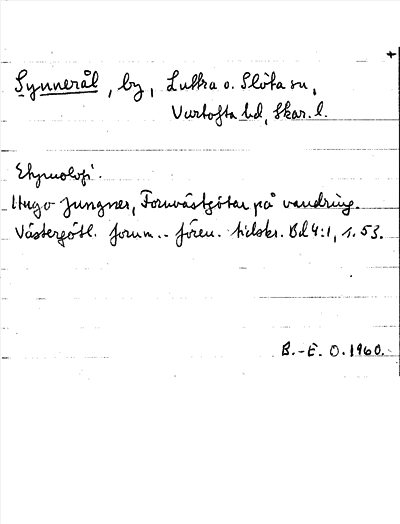 Synnerål, by, Luttra o. Slöta sn,
Vartofta hd, Skar. l.
Etymologi.
Hugo Jungner, Fornvästgötar på vandring.
Västergötl. fornm.- fören. tidskr. Bd 4:1, s. 53.
B.-E. O. 1960.